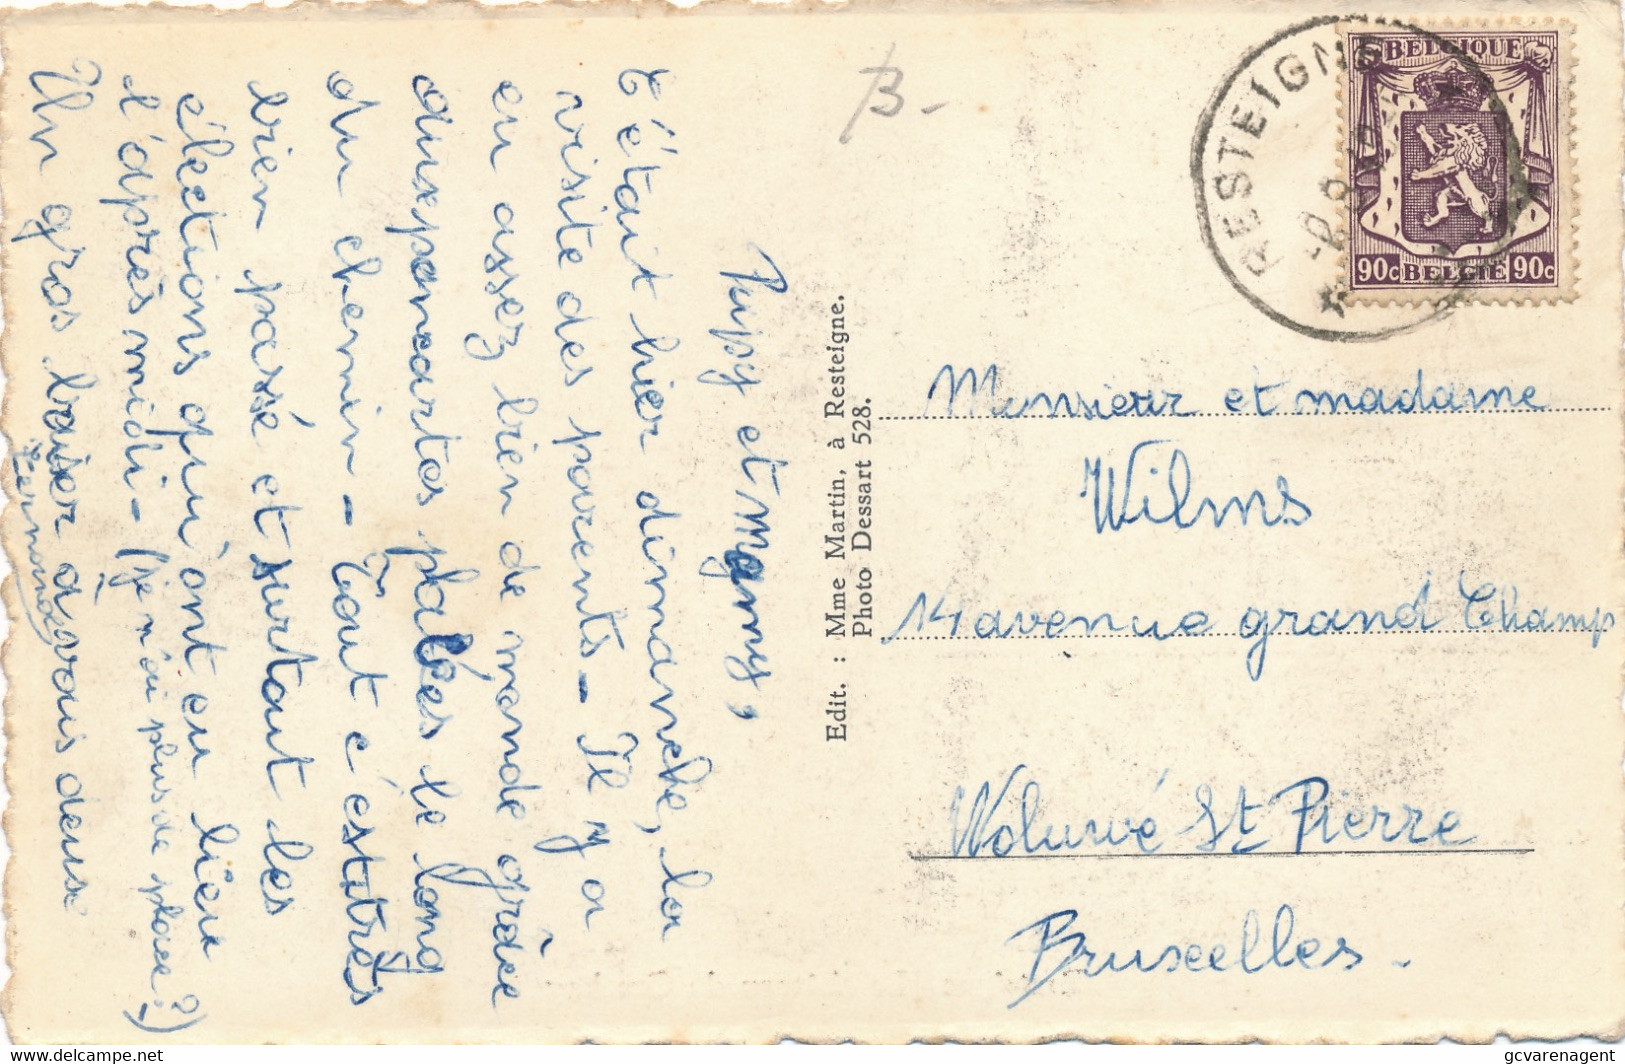 Pupy et Mamy,
C'était hier dimanche, la
visite des parents - Il y a
eu assez bien de monde grâce
aux pancartes placées le long
du chemin - Tout c'est très
bien passé et surtout les
élections qui ont eu lieu
l'après midi - (je n'ai plus de place?)
Un gros baiser à vous deux
B -
Edit. : Mme Martin, à Resteigne.
Photo Dessart 528.
RESTEIGNE
BELGIQUE
90c BELGIE 90c
Monsieur et madame
Wilms
14 avenue grand Champ
Woluwé St Pierre
Bruxelles.
delcampe.net
gcvarenagent